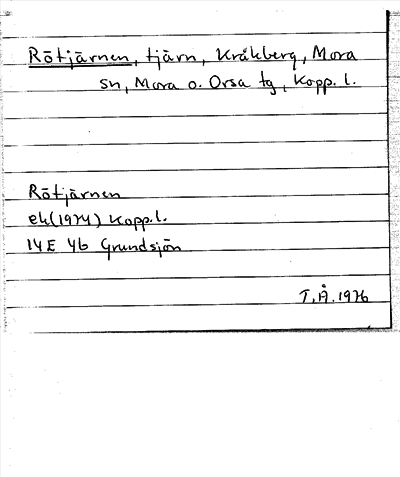 Rötjärnen, tjärn, Kråkberg, Mora
sn, Mora o. Orsa tg, Kopp. l.
Rötjärnen
ek(1974) Kopp. l.
14E 4b Grundsjön
T.Å. 1976